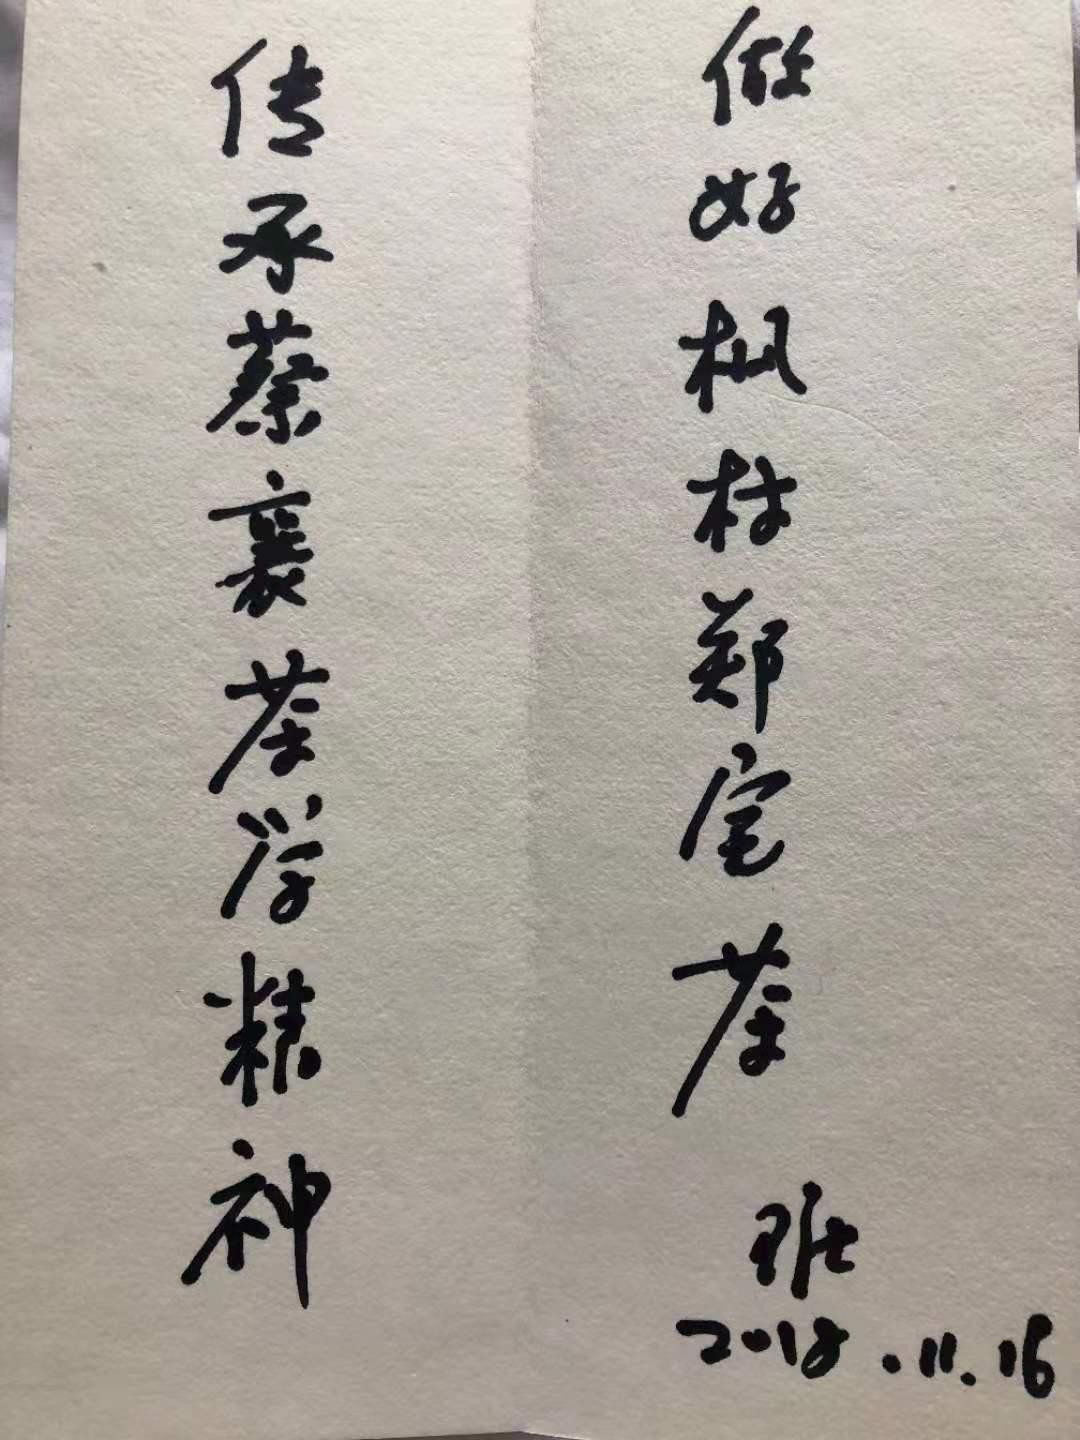 传承蔡襄茶学精神
做好枫村郑宅茶
班
2018.11.16